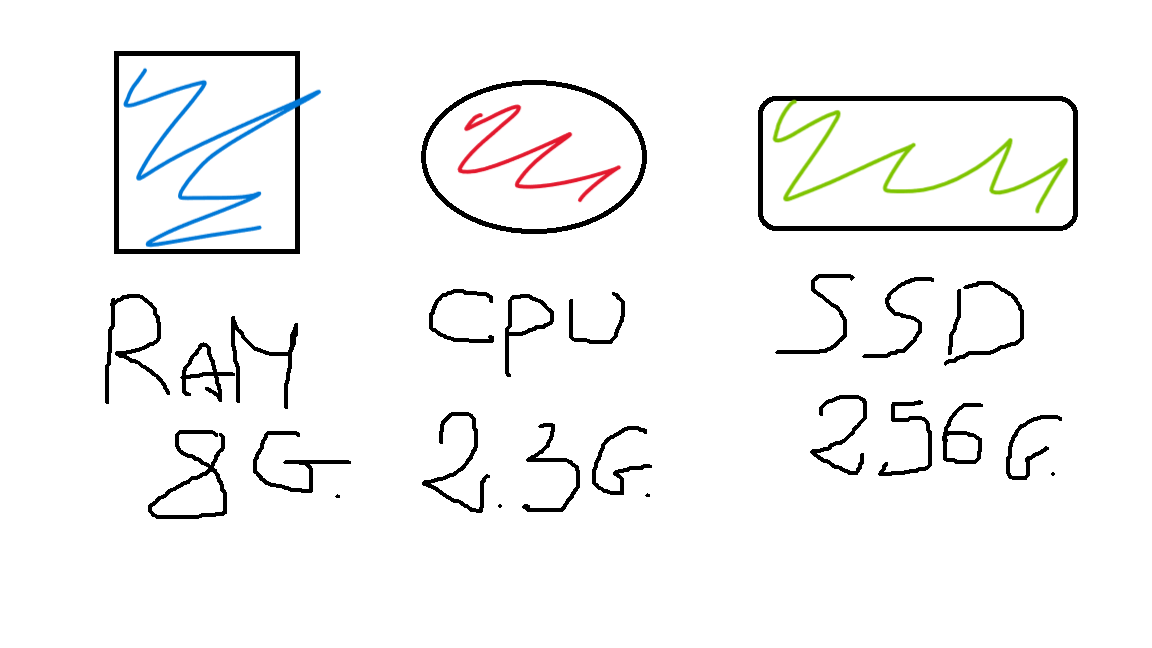 RAM
8G.
CPU
2.3G.
SSD
256G.